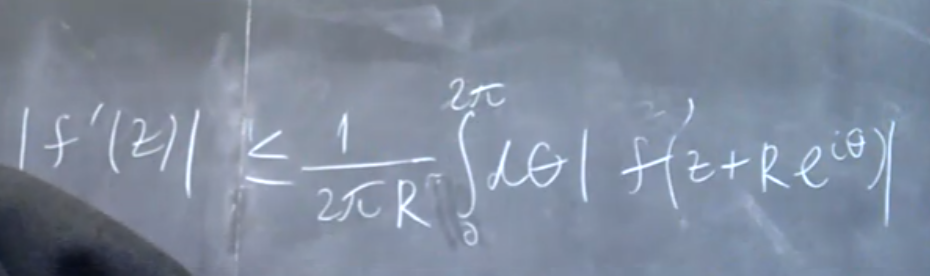 |f'(z)| ≤ \frac{1}{2πR} \int_0^{2π} dθ | f(z+Re^{iθ})|